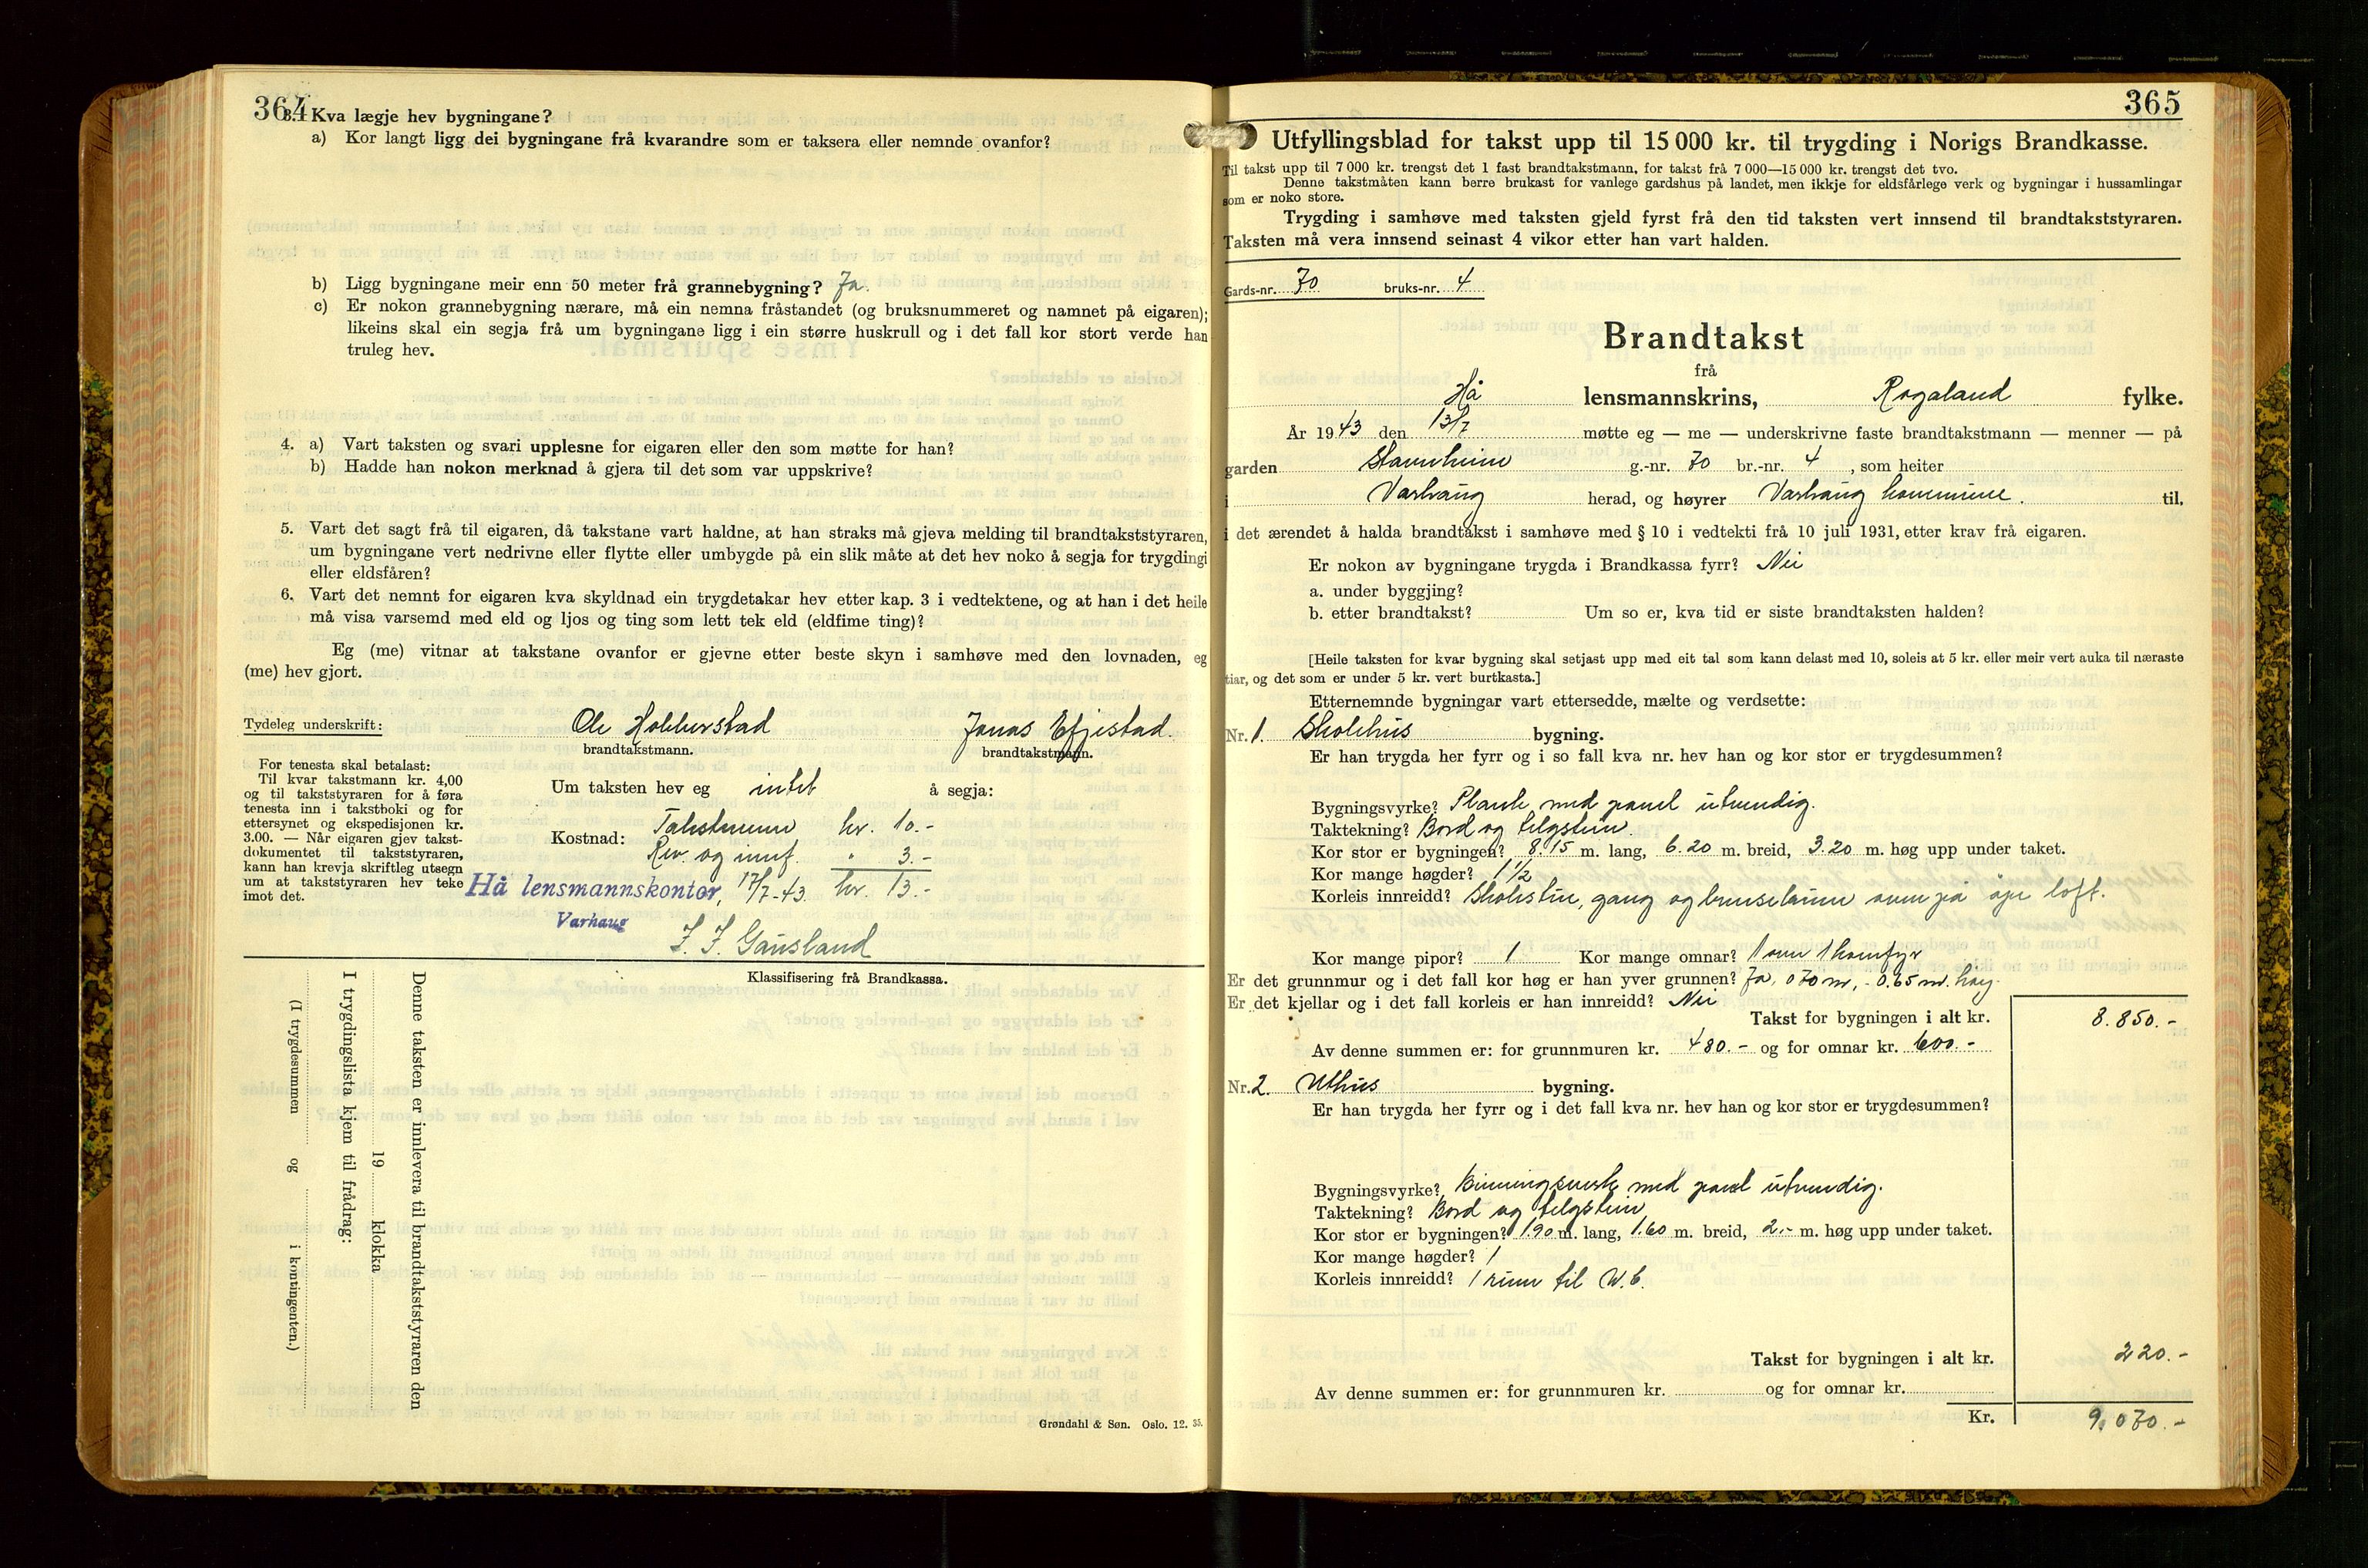 364
3. Kva lægje hev bygningane?
a) Kor langt ligg dei bygningane frå kvarandre som er taksera eller nemnde ovanfor?
b) Ligg bygningane meir enn 50 meter frå grannebygning? Ja.
c) Er nokon grannebygning nærare, må ein nemna fråstandet (og bruksnummeret og namnet på eigaren);
likeins skal ein segja frå um bygningane ligg i ein større huskrull og i det fall kor stort verde han
truleg hev.
4. a) Vart taksten og svari upplesne for eigaren eller den som møtte for han?
b) Hadde han nokon merknad å gjera til det som var uppskrive?
5. Vart det sagt frå til eigaren, då takstane vart haldne, at han straks må gjeva melding til brandtakststyraren,
um bygningane vert nedrivne eller flytte eller umbygde på ein slik måte at det hev noko å segja for trygdingi
eller eldsfåren?
6. Vart det nemnt for eigaren kva skyldnad ein trygdetakar hev etter kap. 3 i vedtektene, og at han i det heile
må visa varsemd med eld og ljos og ting som lett tek eld (eldfime ting)?
Eg (me) vitnar at takstane ovanfor er gjevne etter beste skyn i samhøve med den lovnaden, eg
(me) hev gjort.
Tydeleg underskrift: Ole Hobberstad Jonas Efjestad.
brandtakstmann. brandtakstmann.
For tenesta skal betalast:
Til kvar takstmann kr. 4,00
og til takststyraren for å føra
tenesta inn i takstboki og for
ettersynet og ekspedisjonen kr.
3.00. — Når eigaren gjev takst-
dokumentet til takststyraren,
kann han krevja skriftleg utsegn
um at takststyraren hev teke
imot det.
Um taksten hev eg intet å segja:
Kostnad: Takstmenn kr. 10.-
Rev. og innf. " 3.-
Hå lensmannskontor, 17/7-43. kr. 13.-
Varhaug
J. J. Gausland
Klassifisering frå Brandkassa.
Denne taksten er innlevera til brandtakststyraren den
19 klokka
I trygdingslista kjem til frådrag:
(I trygdesummen og i kontingenten.)
Grøndahl & Søn. Oslo. 12. 35.
365
Utfyllingsblad for takst upp til 15 000 kr. til trygding i Norigs Brandkasse.
Til takst upp til 7 000 kr. trengst det 1 fast brandtakstmann, for takst frå 7 000—15 000 kr. trengst det tvo.
Denne takstmåten kann berre brukast for vanlege gardshus på landet, men ikkje for eldsfårlege verk og bygningar i hussamlingar
som er noko store.
Trygding i samhøve med taksten gjeld fyrst frå den tid taksten vert innsend til brandtakststyraren.
Taksten må vera innsend seinast 4 vikor etter han vart halden.
Gards-nr. 70 bruks-nr. 4
Brandtakst
frå
Hå lensmannskrins, Rogaland fylke.
År 1943 den 13/7 møtte eg — me — underskrivne faste brandtakstmann — menner — på
garden Stavnheim g.-nr. 70 br.-nr. 4, som heiter
i Varhaug herad, og høyrer Varhaug kommune. til,
i det ærendet å halda brandtakst i samhøve med § 10 i vedtekti frå 10 juli 1931, etter krav frå eigaren.
Er nokon av bygningane trygda i Brandkassa fyrr? Nei
a. under byggjing?
b. etter brandtakst? Um so er, kva tid er siste brandtaksten halden?
[Heile taksten for kvar bygning skal setjast upp med eit tal som kann delast med 10, soleis at 5 kr. eller meir vert auka til næraste
tiar, og det som er under 5 kr. vert burtkasta.]
Etternemnde bygningar vart ettersedde, mælte og verdsette:
Nr. 1. Skolehus bygning.
Er han trygda her fyrr og i so fall kva nr. hev han og kor stor er trygdesummen?
Bygningsvyrke? Planke med panel utvendig.
Taktekning? Bord og telgstein.
Kor stor er bygningen? 8.15 m. lang, 6.20 m. breid, 3.20 m. høg upp under taket.
Kor mange høgder? 1 1/2
Korleis innreidd? Skolestue, gang og brenselrum samt på åpe loft.
Kor mange pipor? 1 Kor mange omnar? 1 ovn 1 komfyr
Er det grunnmur og i det fall kor høg er han yver grunnen? Ja, 0 70 m, - 0.65 m. høy.
Er det kjellar og i det fall korleis er han innreidd? Nei
Takst for bygningen i alt kr. 8.850.-
Av denne summen er: for grunnmuren kr. 480.- og for omnar kr. 600.-
Nr. 2. Uthus bygning.
Er han trygda her fyrr og i det fall kva nr. hev han og kor stor er trygdesummen?
Bygningsvyrke? Binningsverk med panel utvendig.
Taktekning? Bord og telgstein
Kor stor er bygningen? 1.90 m. lang, 1.60 m. breid, 2.- m. høg upp under taket.
Kor mange høgder? 1
Korleis innreidd? 1 rum til W.C.
Takst for bygningen i alt kr. 220.-
Av denne summen er: for grunnmuren kr. og for omnar kr.
Kr. 9.070.-